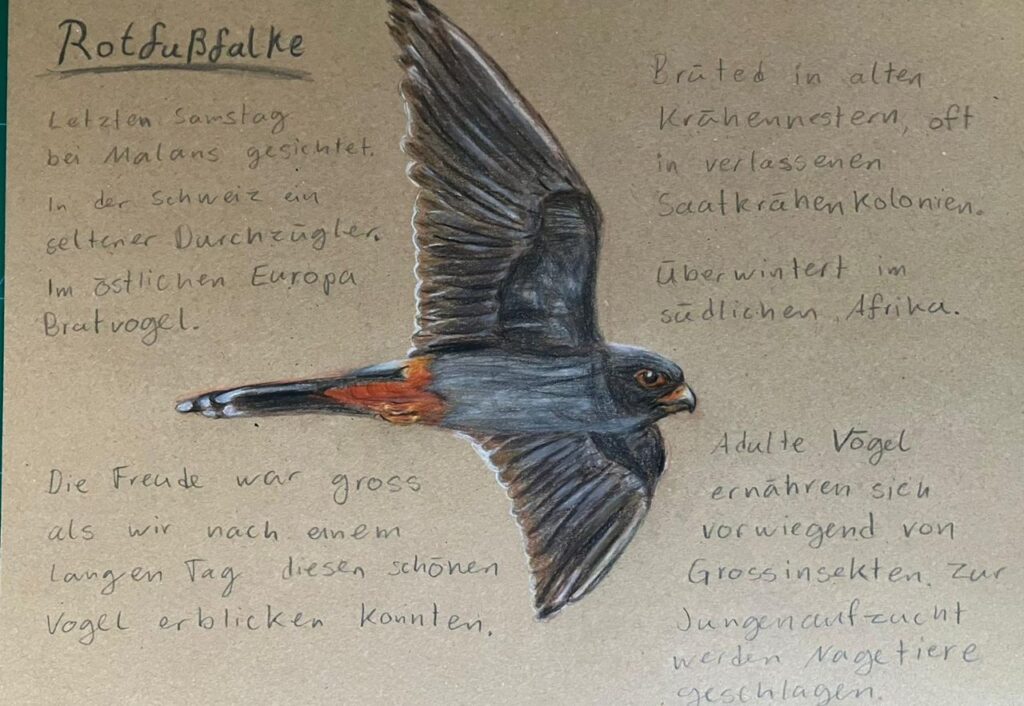 Rotfußfalke
Letzten Samstag
bei Malans gesichtet.
In der Schweiz ein
seltener Durchzügler.
Im östlichen Europa
Brutvogel.
Die Freude war gross
als wir nach einem
langen Tag diesen schönen
Vogel erblicken konnten.
Brüted in alten
Krähennestern, oft
in verlassenen
Saatkrähenkolonien.
Überwintert im
südlichen Afrika.
Adulte Vögel
ernähren sich
vorwiegend von
Grossinsekten. Zur
Jungenaufzucht
werden Nagetiere
geschlagen.